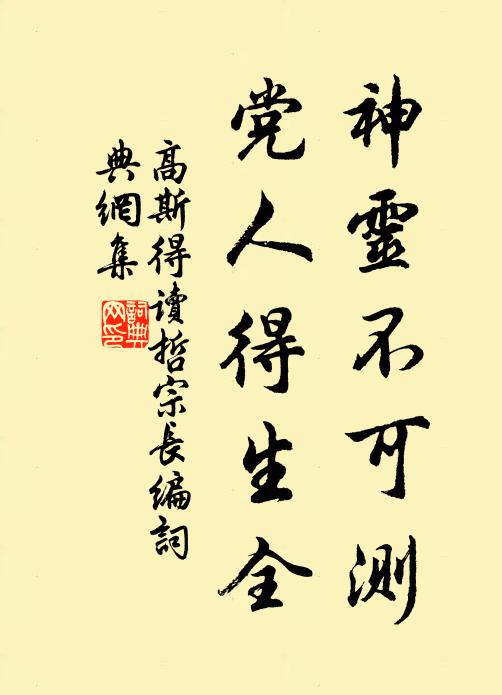 神靈不可測
党人得生全
高斯得讀哲宗長編詞
典網集
詞典網印